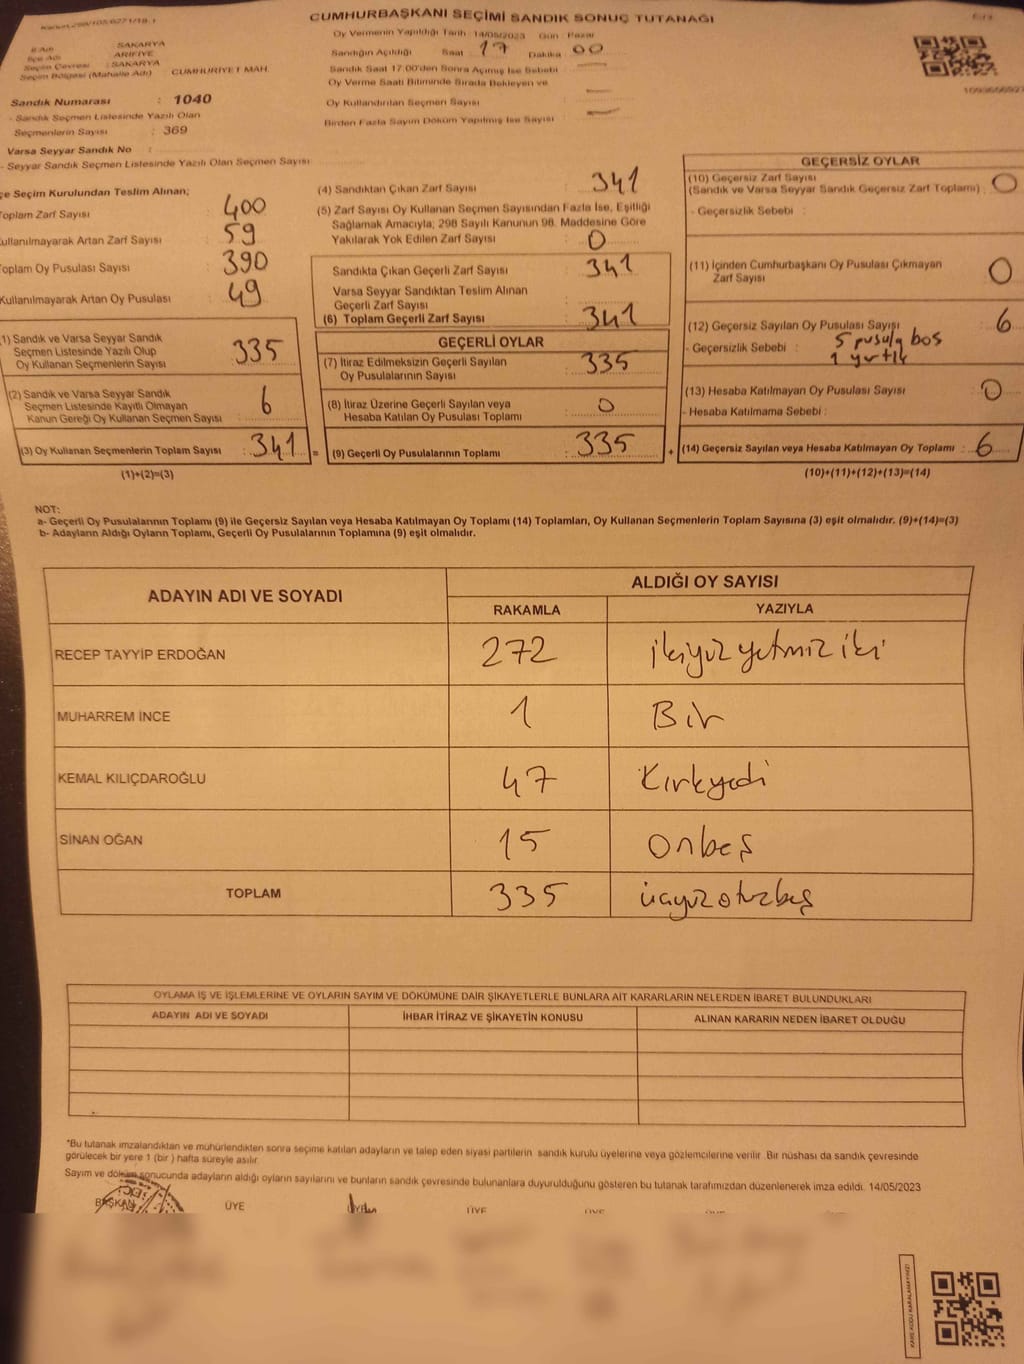 Kanun:298/105/6271/18.1
CUMHURBAŞKANI SEÇİMİ SANDIK SONUÇ TUTANAĞI
İl Adı : SAKARYA
İlçe Adı : ARİFİYE
Seçim Çevresi : SAKARYA
Seçim Bölgesi (Mahalle Adı) CUMHURİYET MAH.
Sandık Numarası : 1040
- Sandık Seçmen Listesinde Yazılı Olan
Seçmenlerin Sayısı : 369
Varsa Seyyar Sandık No :
- Seyyar Sandık Seçmen Listesinde Yazılı Olan Seçmen Sayısı
Oy Vermenin Yapıldığı Tarih 14/05/2023 Gün : Pazar
Sandığın Açıldığı Saat 17 Dakika 00
Sandık Saat 17:00'den Sonra Açılmış İse Sebebi
Oy Verme Saati Bitiminde Sırada Bekleyen ve
Oy Kullandırılan Seçmen Sayısı :
Birden Fazla Sayım Döküm Yapılmış İse Sayısı :
çe Seçim Kurulundan Teslim Alınan;
oplam Zarf Sayısı : 400
ullanılmayarak Artan Zarf Sayısı : 59
oplam Oy Pusulası Sayısı : 390
Kullanılmayarak Artan Oy Pusulası : 49
1) Sandık ve Varsa Seyyar Sandık
Seçmen Listesinde Yazılı Olup
Oy Kullanan Seçmenlerin Sayısı : 335
(2) Sandık ve Varsa Seyyar Sandık
Seçmen Listesinde Kayıtlı Olmayan
Kanun Gereği Oy Kullanan Seçmen Sayısı : 6
(3) Oy Kullanan Seçmenlerin Toplam Sayısı : 341
(1)+(2)=(3)
(4) Sandıktan Çıkan Zarf Sayısı : 341
(5) Zarf Sayısı Oy Kullanan Seçmen Sayısından Fazla İse, Eşitliği
Sağlamak Amacıyla; 298 Sayılı Kanunun 98. Maddesine Göre
Yakılarak Yok Edilen Zarf Sayısı : 0
Sandıkta Çıkan Geçerli Zarf Sayısı : 341
Varsa Seyyar Sandıktan Teslim Alınan
Geçerli Zarf Sayısı :
(6) Toplam Geçerli Zarf Sayısı : 341
GEÇERLİ OYLAR
(7) İtiraz Edilmeksizin Geçerli Sayılan
Oy Pusulalarının Sayısı : 335
(8) İtiraz Üzerine Geçerli Sayılan veya
Hesaba Katılan Oy Pusulası Toplamı : 0
= (9) Geçerli Oy Pusulalarının Toplamı : 335 +
GEÇERSİZ OYLAR
(10) Geçersiz Zarf Sayısı
(Sandık ve Varsa Seyyar Sandık Geçersiz Zarf Toplamı) : 0
- Geçersizlik Sebebi :
(11) İçinden Cumhurbaşkanı Oy Pusulası Çıkmayan
Zarf Sayısı : 0
(12) Geçersiz Sayılan Oy Pusulası Sayısı : 6
- Geçersizlik Sebebi : 5 pusula boş
1 yırtık
(13) Hesaba Katılmayan Oy Pusulası Sayısı : 0
- Hesaba Katılmama Sebebi :
(14) Geçersiz Sayılan veya Hesaba Katılmayan Oy Toplamı : 6
(10)+(11)+(12)+(13)=(14)
NOT:
a- Geçerli Oy Pusulalarının Toplamı (9) ile Geçersiz Sayılan veya Hesaba Katılmayan Oy Toplamı (14) Toplamları, Oy Kullanan Seçmenlerin Toplam Sayısına (3) eşit olmalıdır. (9)+(14)=(3)
b- Adayların Aldığı Oyların Toplamı, Geçerli Oy Pusulalarının Toplamına (9) eşit olmalıdır.
ADAYIN ADI VE SOYADI
ALDIĞI OY SAYISI
RAKAMLA YAZIYLA
RECEP TAYYİP ERDOĞAN 272 ikiyüzyetmiziki
MUHARREM İNCE 1 Bir
KEMAL KILIÇDAROĞLU 47 Kırkyedi
SİNAN OĞAN 15 onbeş
TOPLAM 335 üçyüzotuzbeş
OYLAMA İŞ VE İŞLEMLERİNE VE OYLARIN SAYIM VE DÖKÜMÜNE DAİR ŞİKAYETLERLE BUNLARA AİT KARARLARIN NELERDEN İBARET BULUNDUKLARI
ADAYIN ADI VE SOYADI İHBAR İTİRAZ VE ŞİKAYETİN KONUSU ALINAN KARARIN NEDEN İBARET OLDUĞU
*Bu tutanak imzalandıktan ve mühürlendikten sonra seçime katılan adayların ve talep eden siyasi partilerin sandık kurulu üyelerine veya gözlemcilerine verilir. Bir nüshası da sandık çevresinde
görülecek bir yere 1 (bir ) hafta süreyle asılır.
Sayım ve döküm sonucunda adayların aldığı oyların sayılarını ve bunların sandık çevresinde bulunanlara duyurulduğunu gösteren bu tutanak tarafımızdan düzenlenerek imza edildi. 14/05/2023
BAŞKAN ÜYE ÜYE ÜYE ÜYE
KARE KODU KARALAMAYINIZ!